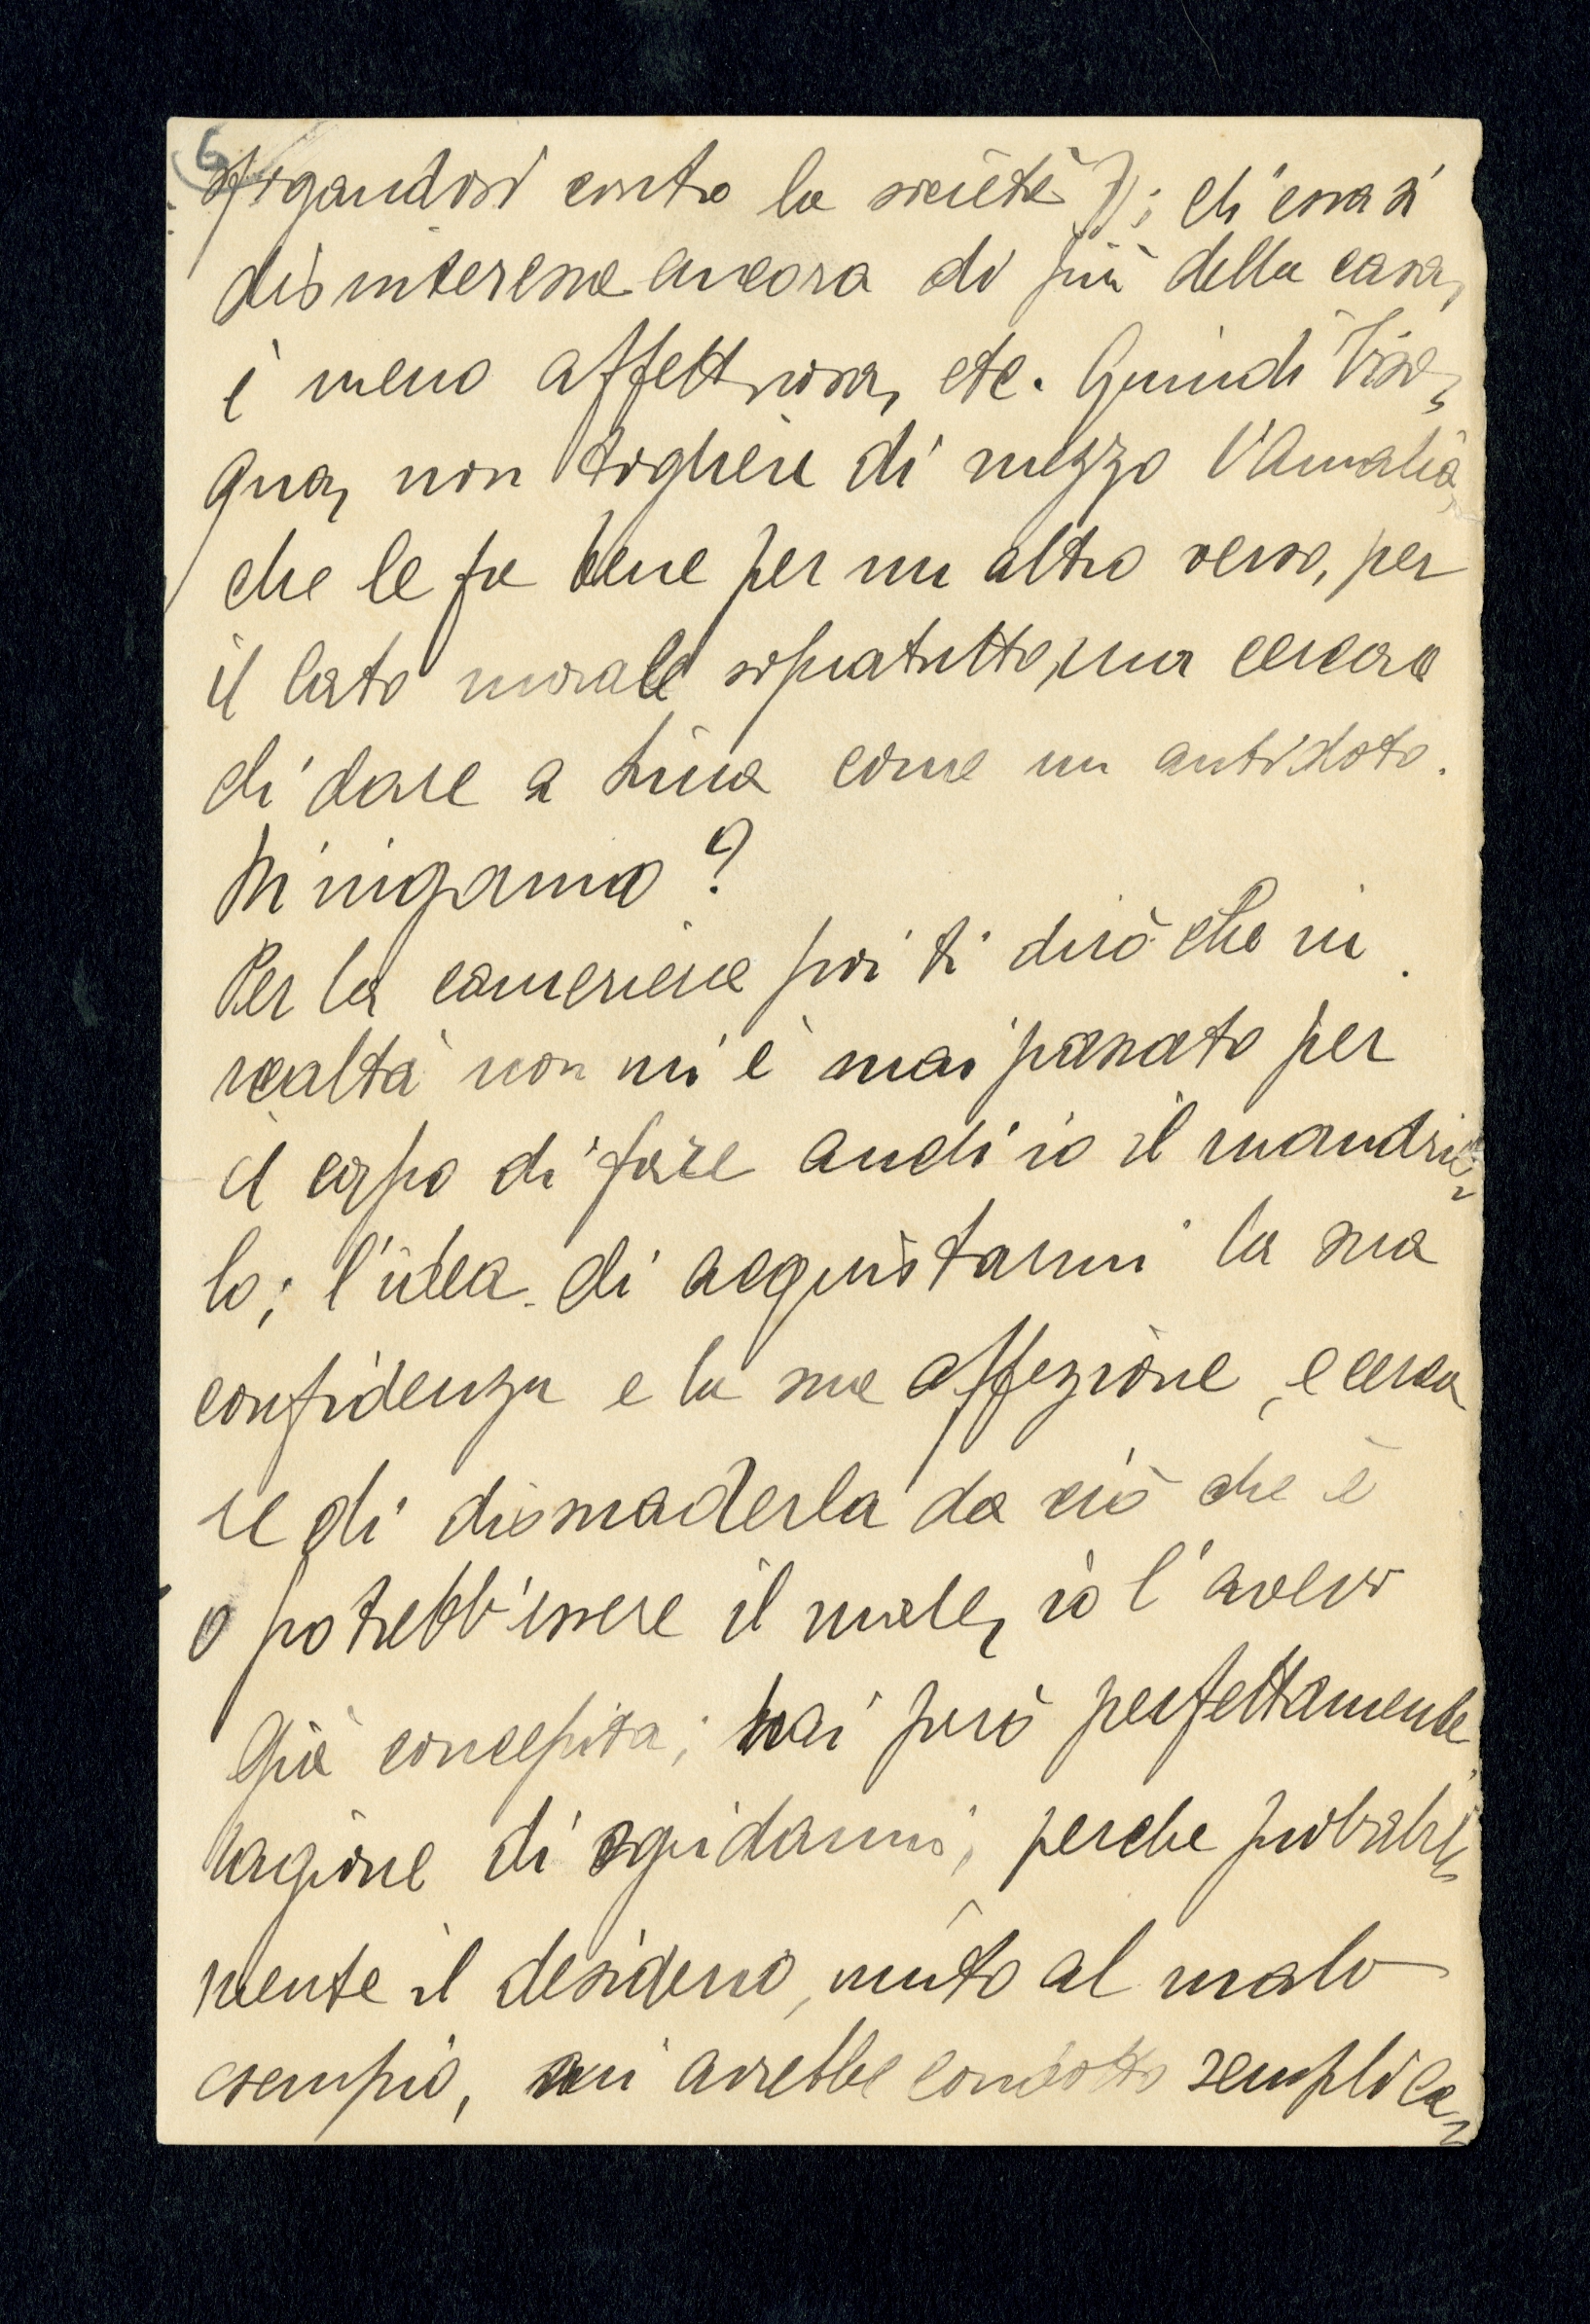 5
sfogandosi contro la società?); ch'essa si
disinteressa ancora di più della casa,
è meno affettuosa, etc. Quindi biso-
gna, non togliere di mezzo l'Amalia,
che le fa bene per un altro verso, per
il lato morale sopratutto, ma cercare
di dare a Lina come un antidoto.
Mi nigamo?
Per la cameriera poi ti dirò che in
realtà non mi è mai passato per
il capo di fare anch'io il mandril-
lo; l'idea di acquistarmi la sua
confidenza e la sua affezione, e cerca
re di dissuaderla da ciò che è
o potrebb'essere il male, io l'avevo
già concepita; hai però perfettamente
ragione di sgridarmi, perche probabil-
mente il desiderio, unito al malo
esempio, mi avrebbe condotto semplice-